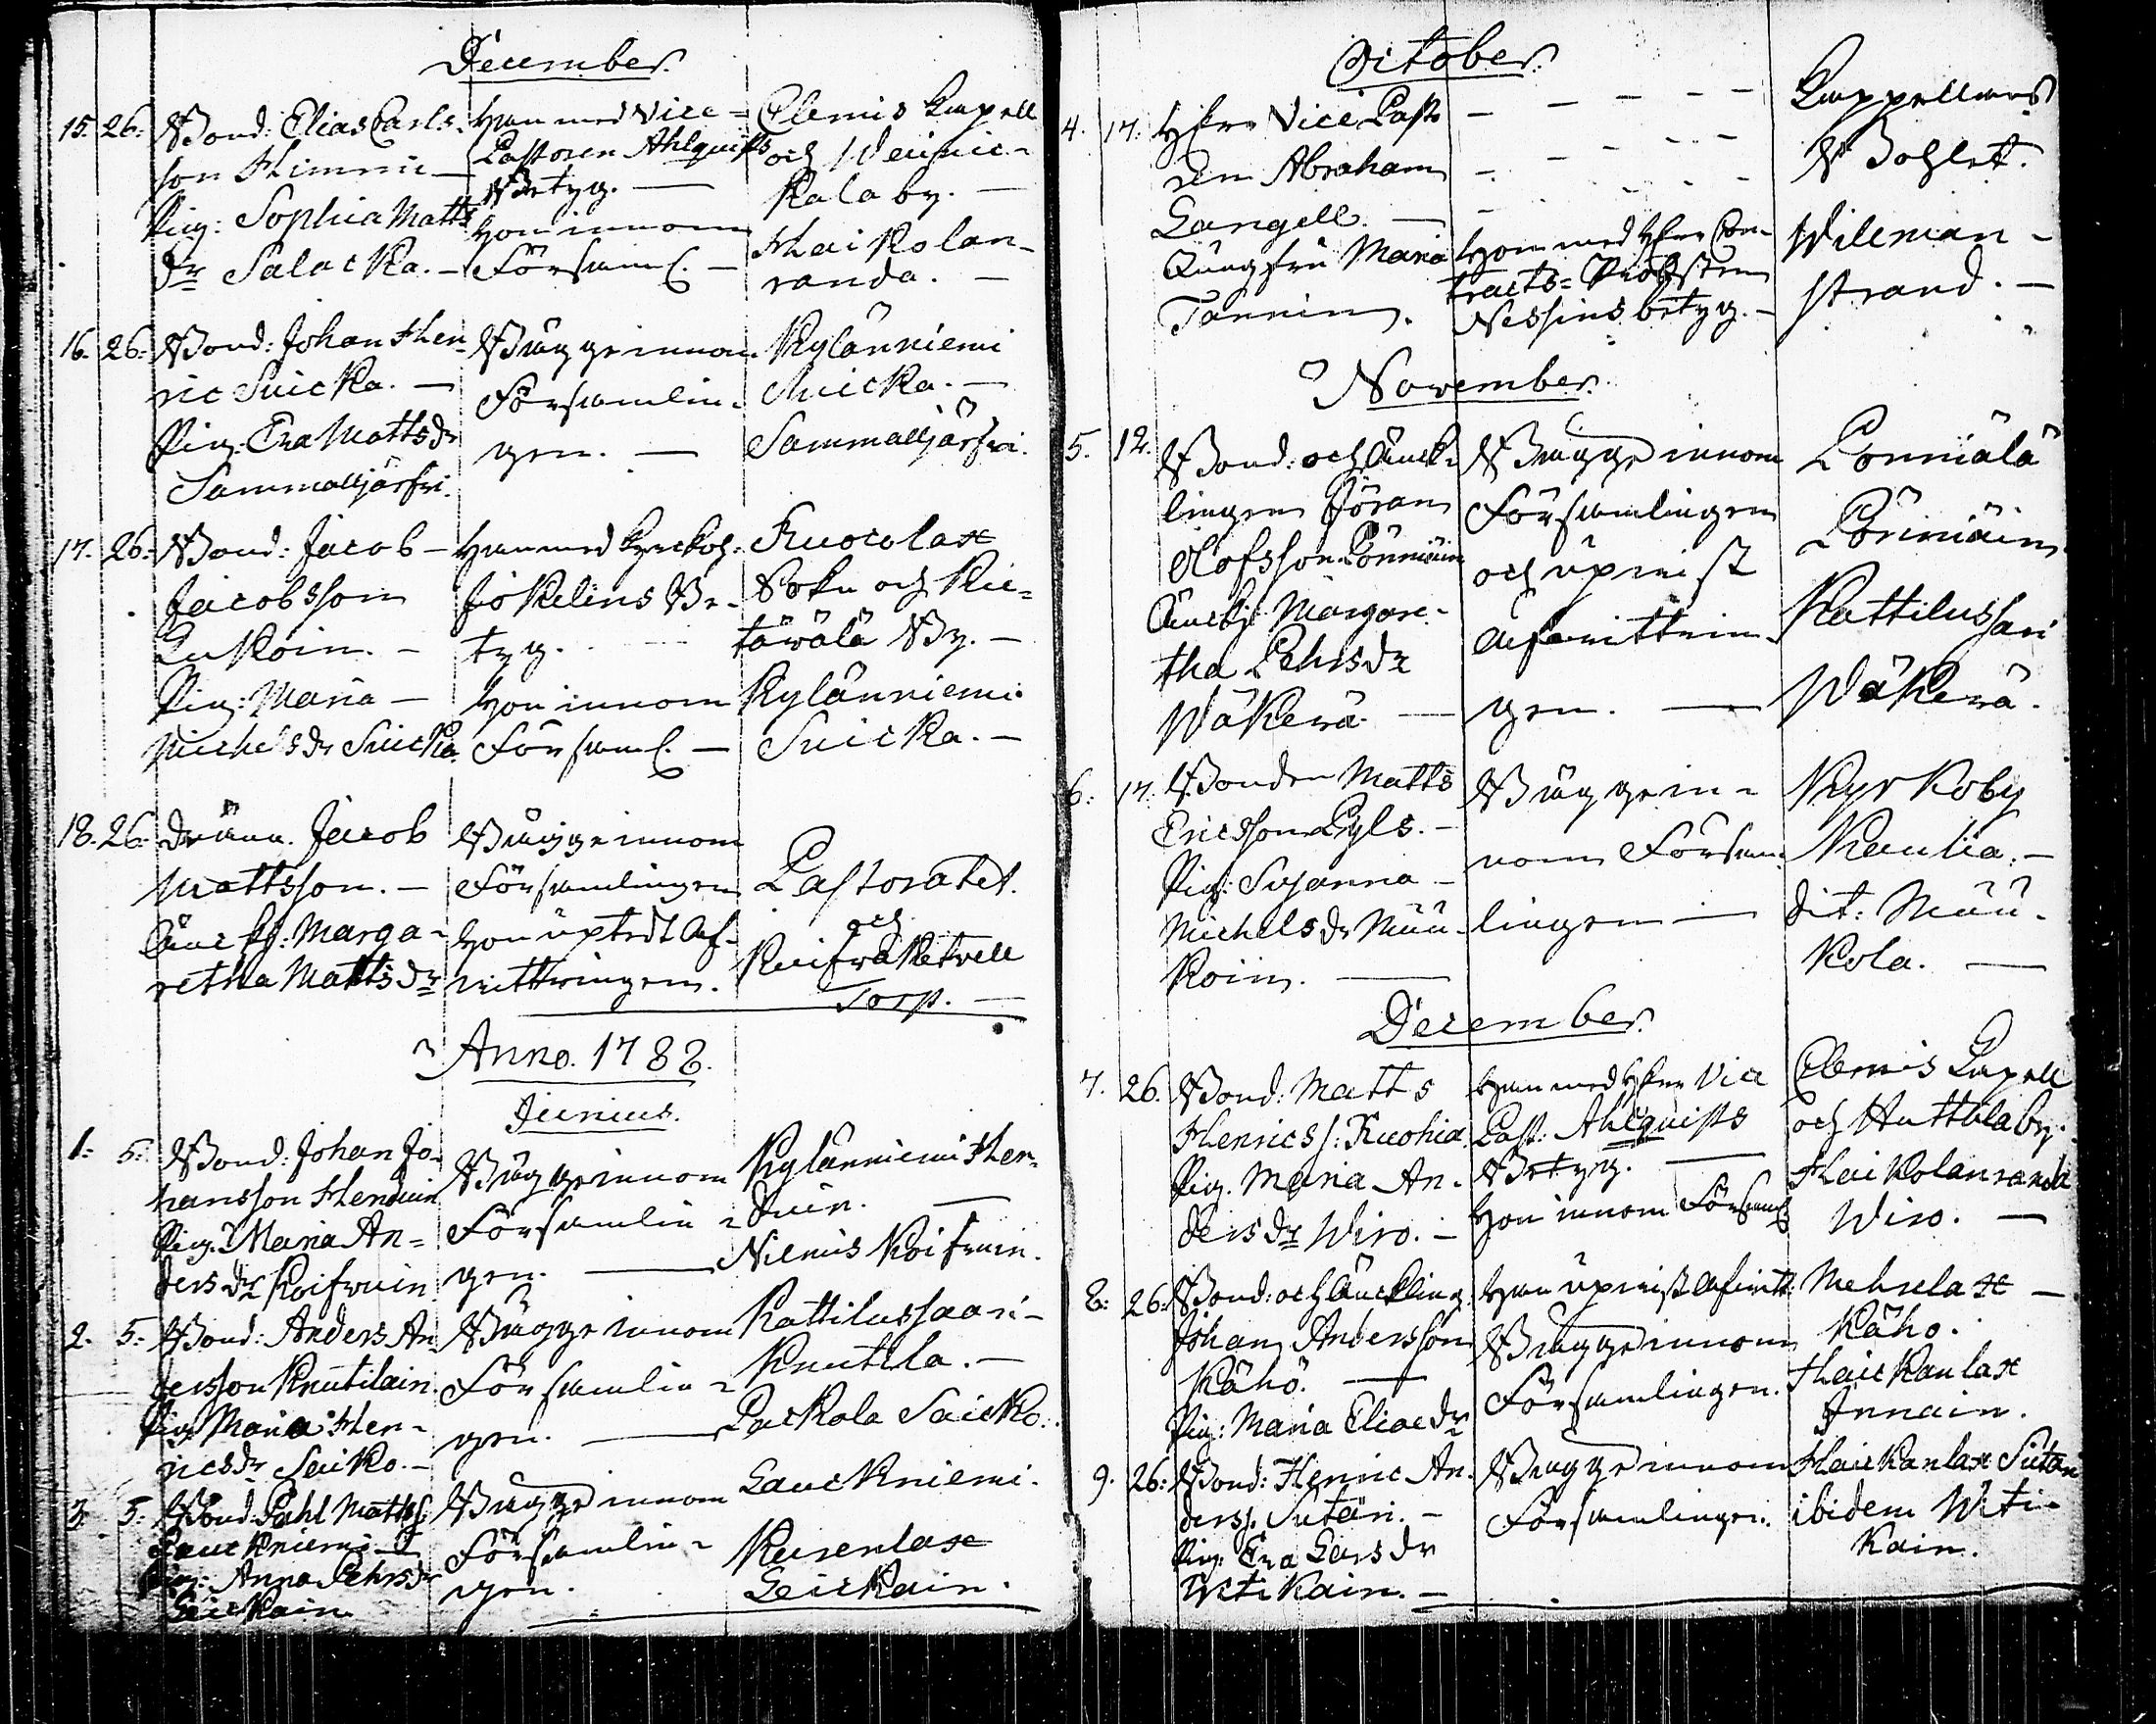 December.
15. 26. Bond: Elias Carls-
son Himmi
Pig: Sophia Matts
dr Salacka. —
Han med Vice-
Pastoren Ahlquists
Betyg. —
Hon innom
Församl. —
Clemis Capell
och Weinic-
kala by. —
Haikolan-
randa. —
16. 26. Bond: Johan Hen-
ric Suicka. —
Pig. Eva Mattsdr
Sammaljärfvi.
Bägge innom
Församlin-
gen. —
Kylänniemi
Suicka. —
Sammaljärfvi.
17. 26. Bond: Jacob —
Jacobsson
Luköin. —
Pig: Maria —
Michelsdr Suicka
Han med Kyrkoh:
Jokelins Be-
tyg.
Hon innom
Församl. —
Kuocolax
Sokn och Kii-
tärälä By. —
Kylänniemi
Suicka. —
18. 26. Dräng. Jacob
Mattsson. —
Änckj: Marga-
retha Mattsdr
Bägge innom
Församlingen
Hon uptedt Af-
wittringen.
Pastoratet.
och
Torp. —
Anno. 1788.
Junius.
1. 5. Bond: Johan Jo-
hansson Henduin
Pig. Maria An-
dersdr Koifvuin
Bägge innom
Församlin-
gen. —
Kylänniemi Hen-
duin. —
Niemis Koifvuin.
2. 5. Bond: Anders An
dersson Knutilain.
Pig Maria Hen-
ricsdr Saicko. —
Bägge innom
Församlin-
gen. —
Kattilussaari-
Knutila. —
Packola Saicko.
3. 5. Bond: Påhl Mattss.
Lauckniemi —
Pig: Anna Pehrsdr
Leickain
Bägge innom
Församlin-
gen.
Lauckniemi.
Kurenlax
Leickain.
October.
4. 17. Herr Vice Past
ren Abraham
Langell. —
Jungfru Maria
Tannin.
Hon med Herr Con-
tracts-Probsten
Nessius betyg. —
Cappellans
Bohlet.
Willman-
strand. —
November.
5. 12. Bond: och Änck-
lingen Jöran
Olofsson Pönniäin
Änckj. Margare-
tha Pehrsdr
Wäkevä. —
Bägge innom
Församlingen
och upvist
Afwittrin-
gen. —
Pönniälä
Pönniäin.
Kattilussari
Wäkevä.
6. 17. Bonden Matts
Ericsson Pyls. —
Pig: Susanna —
Michelsdr Müü-
koin. —
Bägge in-
nom Försam-
lingen —
Kyrkoby
Kaulia. —
dit: Müü-
kola. —
December.
7. 26. Bond: Matts
Henricss: Kuohia
Pig. Maria An-
dersdr Wiro. —
Han med Herr Vice
Past: Ahlquists
Betyg. —
Hon innom Församl
Clemis Capell
och Huttula by.
Haikolanranda
Wiro. —
8. 26. Bond: och Änckling.
Johan Andersson
Kähö. —
Pig: Maria Eliaedr
Han upvist Afwitt:
Bägge innom
Församlingen.
Mehrelax —
Kähö.
Haickanlax
Ännäin.
9. 26. Bond: Henric An-
derss. Sutari. —
Pig: Eva Larsdr
Witikain. —
Bägge innom
Församlingen.
Haickanlax Sutari
ibidem Witi-
kain.